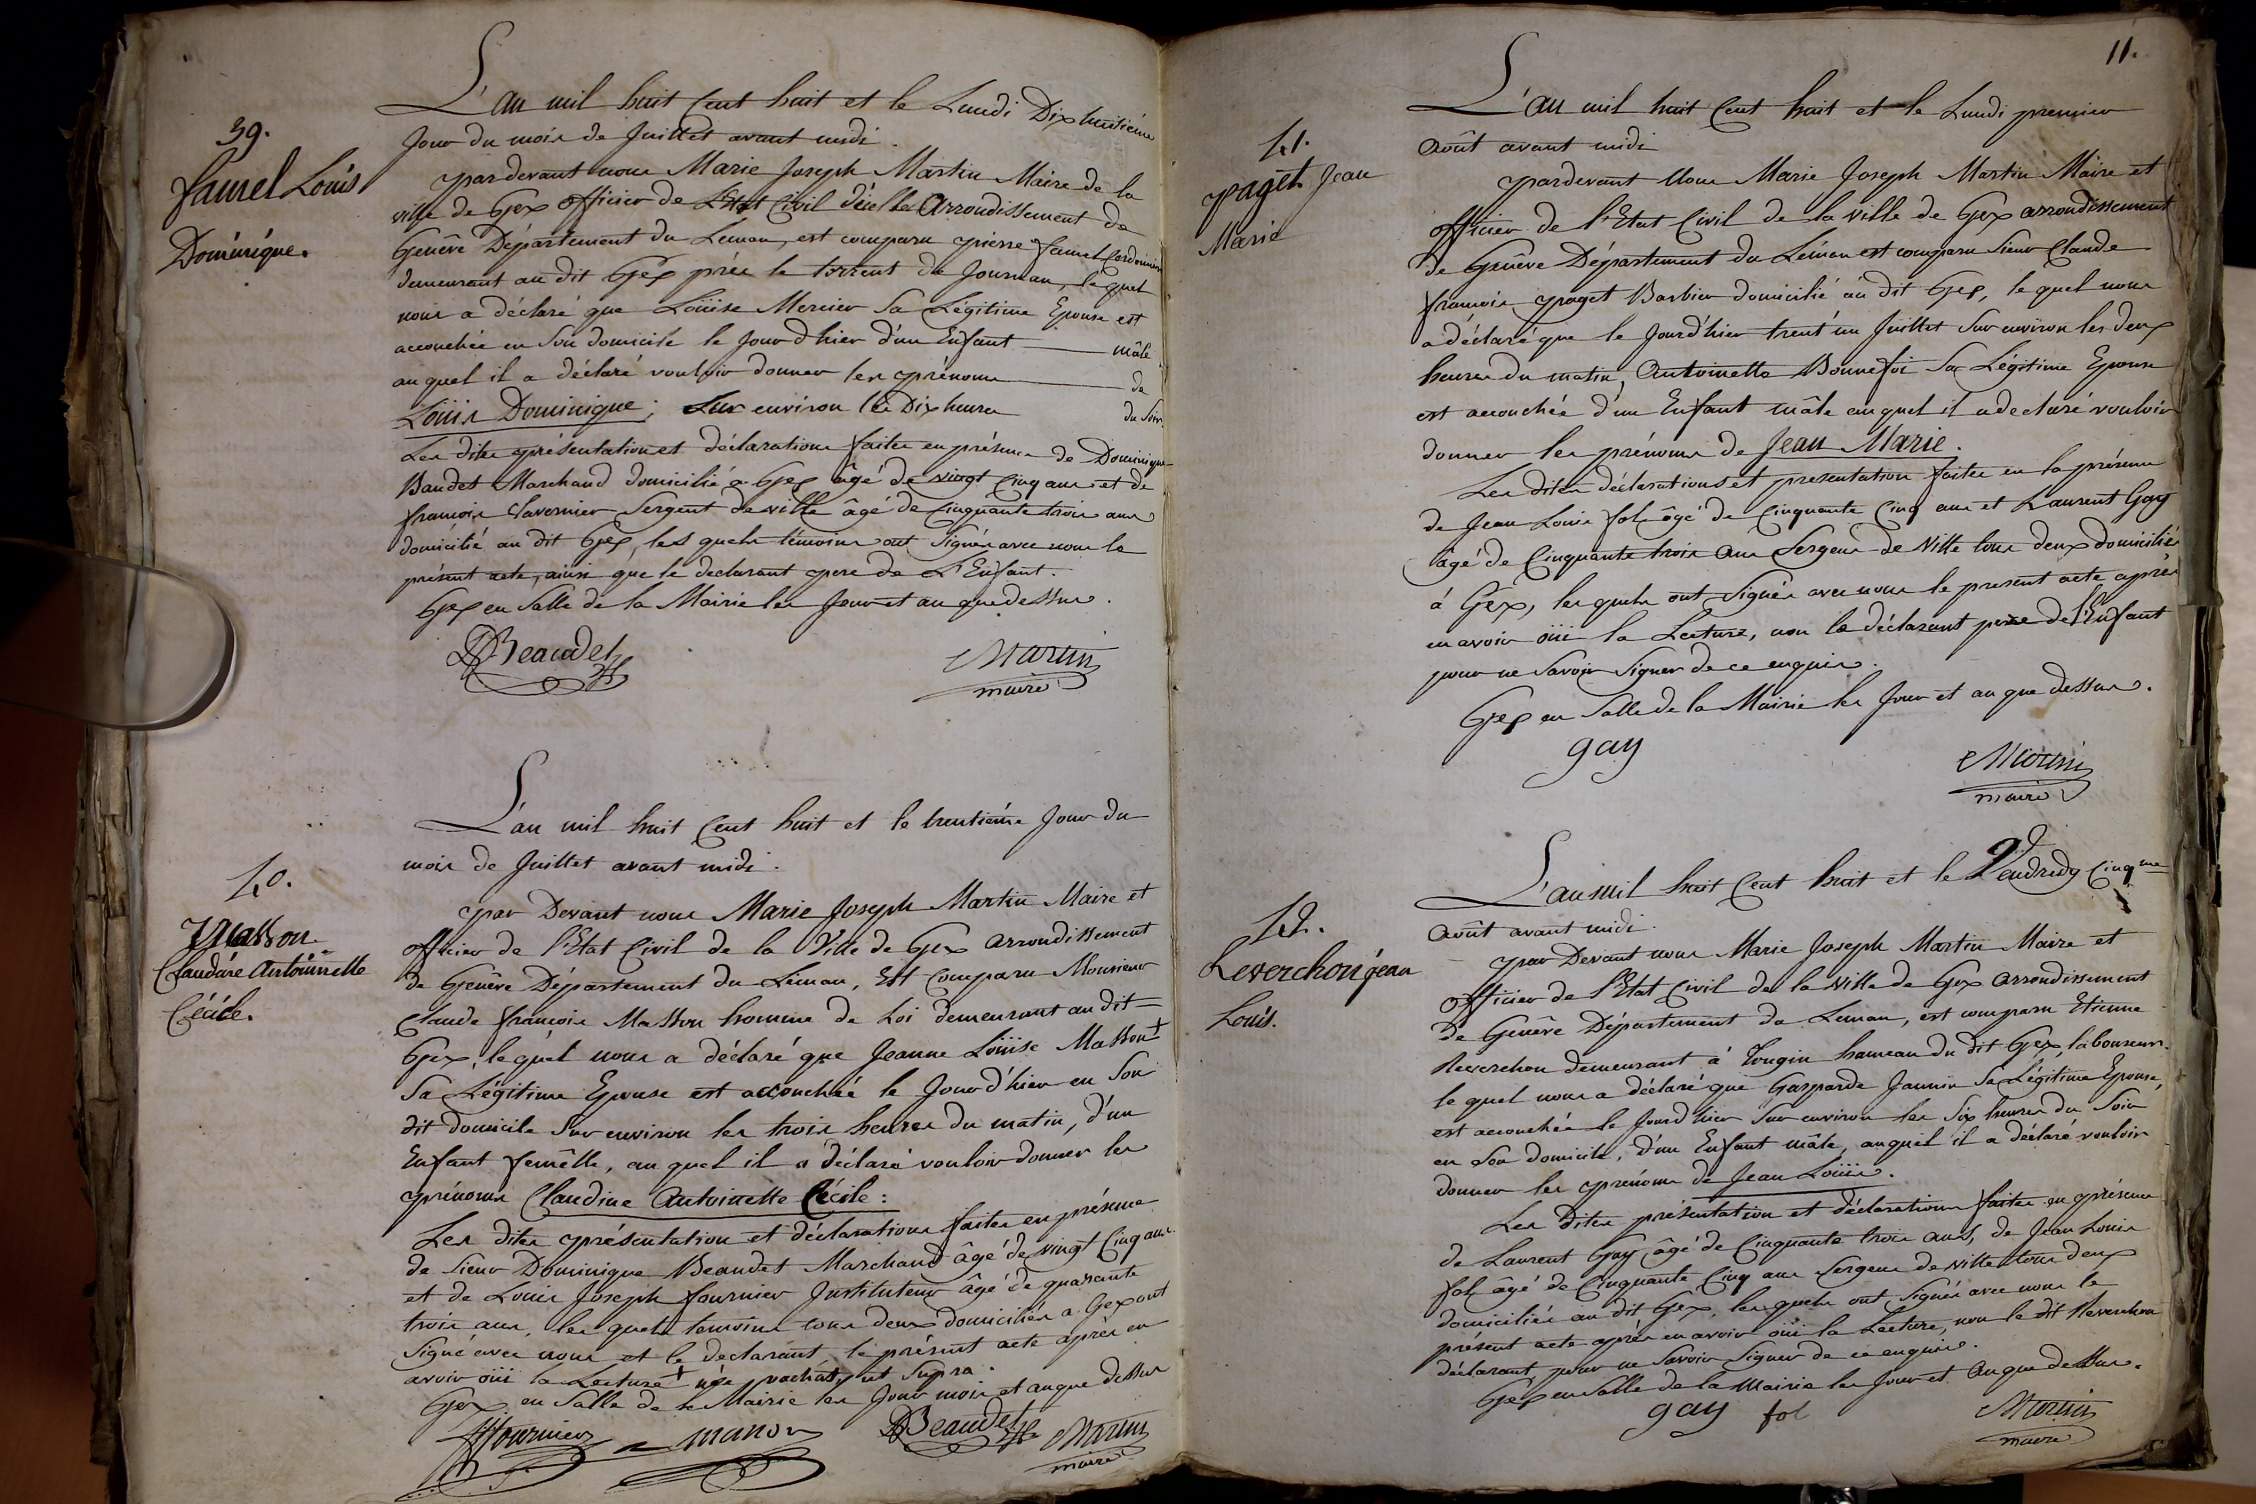 39.
faurel Louis
Dominique.
L'an mil huit Cent huit et le Lundi Dix huitiéme
Jour du mois de Juillet avant midi.
pardevant nous Marie Joseph Martin Maire de la
ville de Gex officier de L'Etat Civil d'icelle Arrondissement de
Genêve Département du Leman, est comparu pierre faurel Cordonnier
demeurant au dit Gex près le torrent de Journan, le quel
nous a déclaré que Loüise Mercier Sa Légitime Epouse est
accouchée en Son domicile le Jour d'hier d'un Enfant mâle
au quel il a déclaré vouloir donner les prénoms de
Loüis Dominique; Sur environ les Dix heures du Soir.
Les dites présentation et déclarations faites en présence de Dominique
Baudet Marchand domicilié à Gex âgé de vingt Cinq ans et de
françois Tavernier Sergent de ville âgé de Cinquante trois ans
domicilié au dit Gex, les quels témoins ont Signés avec nous le
présent acte, ainsi que le declarant pere de L'Enfant.
Gex en Salle de la Mairie les Jour et an que dessus.
DBeaudet
Martin
maire
40.
Masson
Claudine Antoinette
Cécile.
L'an mil huit Cent huit et le trentiéme Jour du
mois de Juillet avant midi.
par Devant nous Marie Joseph Martin Maire et
officier de l'Etat Civil de la Ville de Gex arrondissement
de Genêve Département du Léman, Est Comparu Monsieur
Claude françois Masson homme de Loi demeurant au dit
Gex, le quel nous a déclaré que Jeanne Loüise Masson +
Sa Légitime Epouse est accouchée le Jour d'hier en Son
dit domicile Sur environ les trois heures du matin, d'un
Enfant femêlle, au quel il a déclaré vouloir donner les
prénoms Claudine Antoinette Cécile:
Les dites présentation et déclarations faites en présence
de Sieur Dominique Beaudet Marchand âgé de vingt Cinq ans
et de Louis Joseph fournier Instituteur âgé de quarante
trois ans, les quels temoins tous deux domiciliés a Gex ont
Signé avec nous et le déclarant le présent acte après en
avoir oüi la Lecture + née vachat, ut Supra.
Gex en Salle de la Mairie les Jour mois et an que dessus
fournier
masson
DBeaudet
Martin
maire
11.
41.
paget Jean
Marie
L'an mil huit Cent huit et le Lundi premier
Août avant midi
pardevant Nous Marie Joseph Martin Maire et
officier de l'Etat Civil de la ville de Gex arrondissement
de Genêve Département du Léman est comparu Sieur Claude
françois paget Barbier domicilié au dit Gex, le quel nous
a déclaré que le Jourd'hier trent'un Juillet Sur environ les deux
heures du matin, Antoinette Bonnefoi Sa Légitime Epouse
est accouchée d'un Enfant mâle au quel il a declaré vouloir
donner les prénoms de Jean Marie.
Les dites déclarations et presentation faites en la présence
de Jean Louis fol âgé de Cinquante Cinq ans et Laurent Gay
âgé de Cinquante trois ans Sergens de Ville tous deux domiciliés
à Gex, les quels ont Signés avec nous le present acte après
en avoir oüi la Lecture, non le déclarant pere de l'Enfant
pour ne Savoir Signer de ce enquis.
Gex en Salle de la Mairie les Jour et an que dessus.
gay
Martin
maire
42.
Reverchon jean
Louis.
L'an mil huit Cent huit et le Vendredy Cinqme
Août avant midi.
par Devant nous Marie Joseph Martin Maire et
officier de l'Etat Civil de la Ville de Gex arrondissement
de Genêve Département du Leman, est comparu Etienne
Reverchon demeurant à Tougin hameau du dit Gex, laboureur,
le quel nous a déclaré que Gasparde Jannin Sa Légitime Epouse,
est accouchée le Jourd'hier Sur environ les Six heures du Soir
en Son domicile, d'un Enfant mâle, auquel il a déclaré vouloir
donner les prénoms de Jean Loüis.
Les dites présentation et déclarations faites en présence
de Laurent Gay âgé de Cinquante trois ans, de Jean Louis
fol âgé de Cinquante Cinq ans Sergens de ville tous deux
domiciliés au dit Gex, les quels ont Signés avec nous le
présent acte après en avoir oüi la Lecture, non le dit Reverchon
déclarant, pour ne Savoir Signer de ce enquis.
Gex en Salle de la Mairie les Jour et An que dessus.
gay
fol
Martin
maire